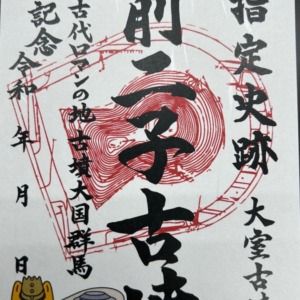 指定史跡
大室古墳
前二子古墳
古代ロマンの地古墳大国群馬
記念
令和 年 月 日